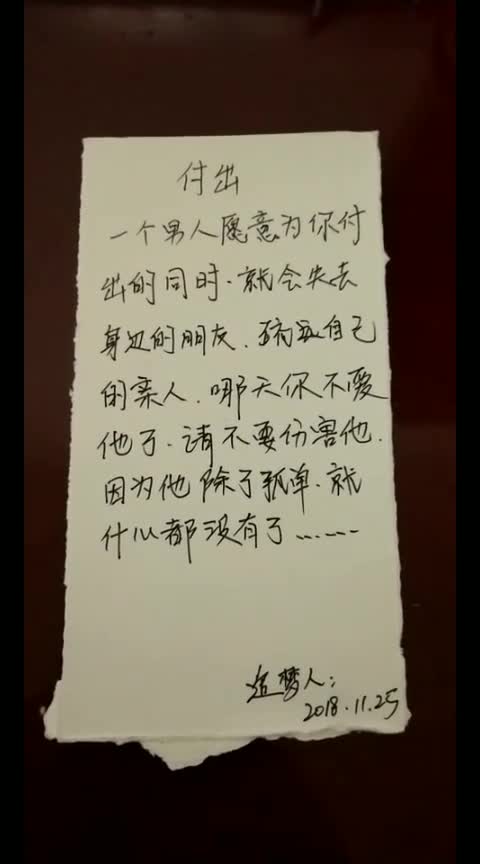 付出
一个男人愿意为你付
出的同时.就会失去
身边的朋友.疏远自己
的亲人.哪天你不爱
他了.请不要伤害他.
因为他除了孤单.就
什么都没有了......
追梦人:
2018.11.25